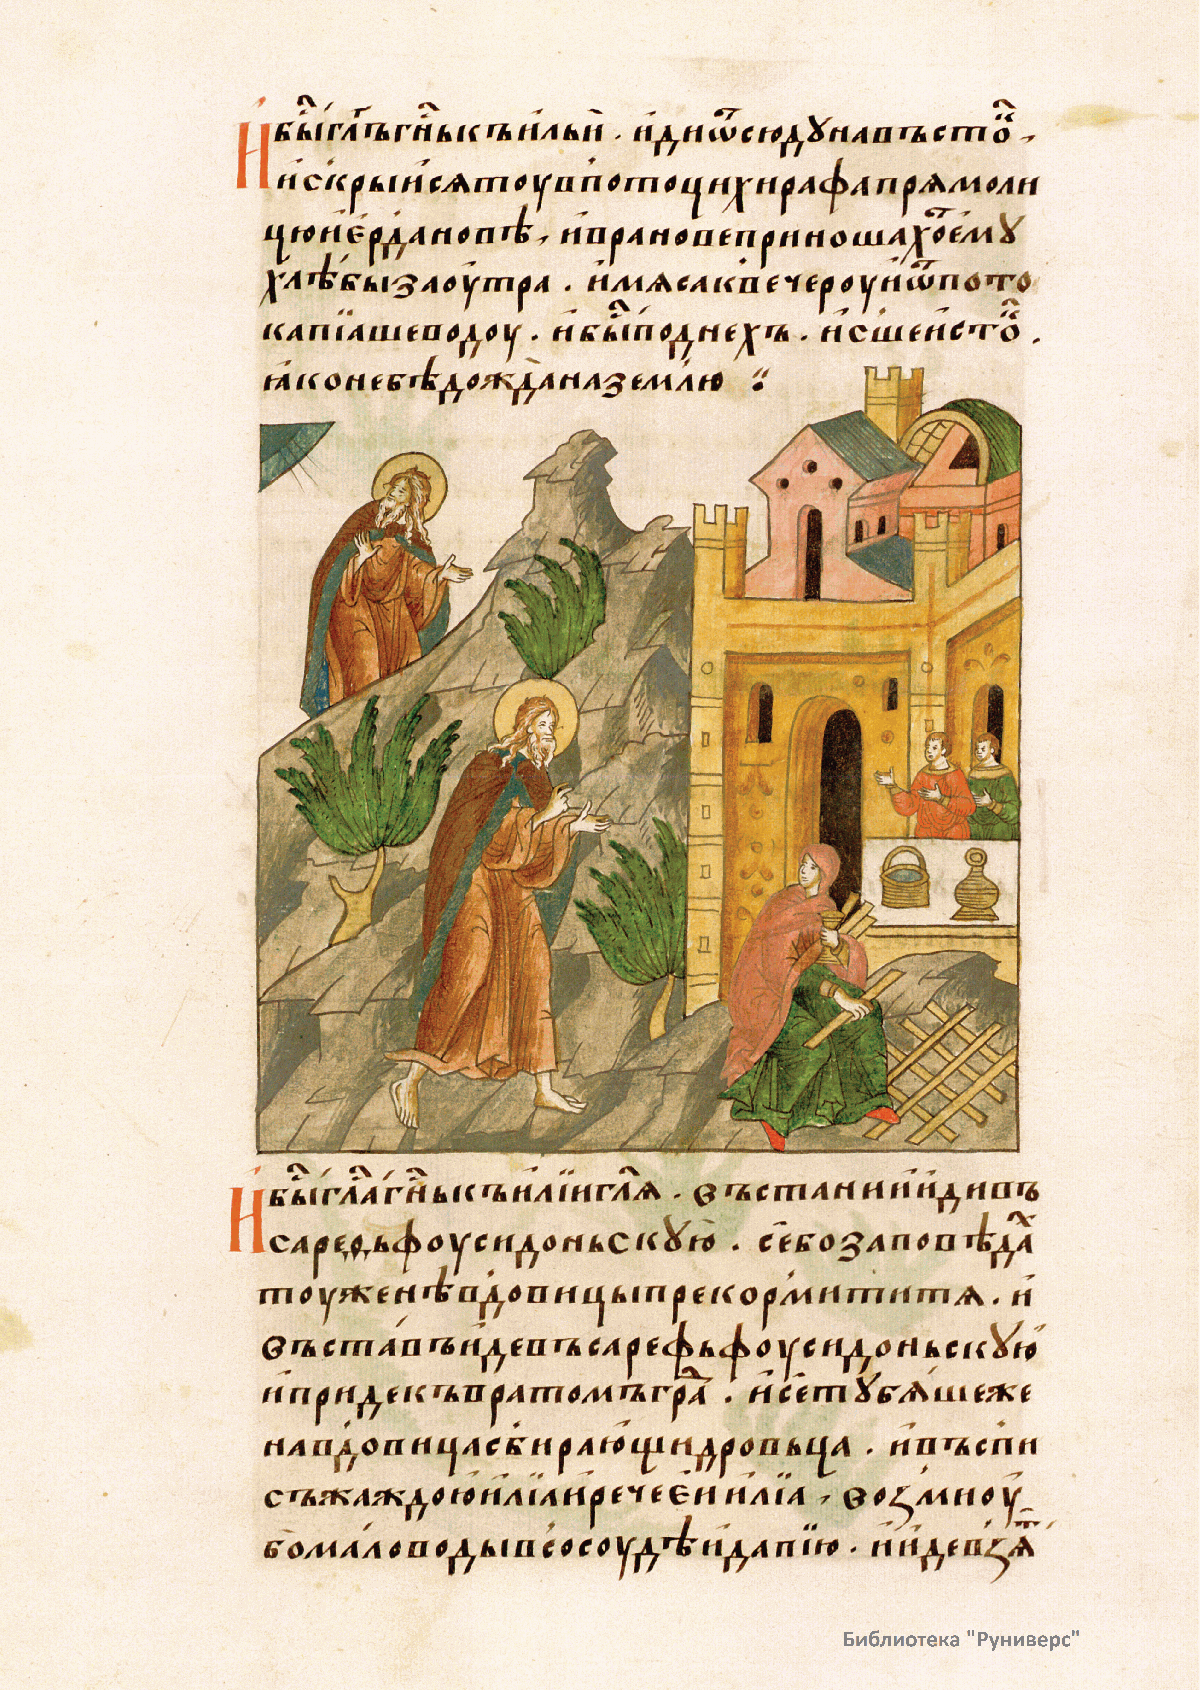 И бы́ гл҃ъ гн҃ь къ и́льѝ . и҆ди ѿсюдꙋ на въсто̑ ,
и҆ скры́и сѧ тоу в потоци хирафа прѧмо ли
цю і҆ѐрда́новѣ , и҆ вра́нове приноша́хꙋ є҆мꙋ̀
хлѣ́бы заоу́тра . и҆ мѧса к ве́чероу и҆ ѿ пото
ка пїа́ше водоу . и҆ бы́ по днехъ . и҆сше и҆сто̑ .
ꙗ҆ко не бѣ̀ дождѧ̀ на землю ⁘
И бы́ гл҃а гн҃ь къ и҆лїѝ гл҃ѧ . въстани и҆ и҆ди въ
саре́фьфоу сидо́ньскꙋю̀ . сѐ бо заповѣ́да
тоу женѣ̀ вдови́цы прекорми́ти тѧ . и҆
въста́въ и҆́де въ саре́фьфоу сидо́ньскꙋю
и҆ прииде къ врато́мъ гра́ . и҆ сѐ тꙋ̀ бѧ́ше же
на вдови́ца сбира́ющи дро́вьца . и҆ въспи
съжаждою и҆лїа и҆ рече є҆и и҆лїа̀ , возми оу́
бо мало воды в сосоу́дѣ и҆ да пїю̀ . и҆ и҆де взѧ́
Библиотека "Руниверс"